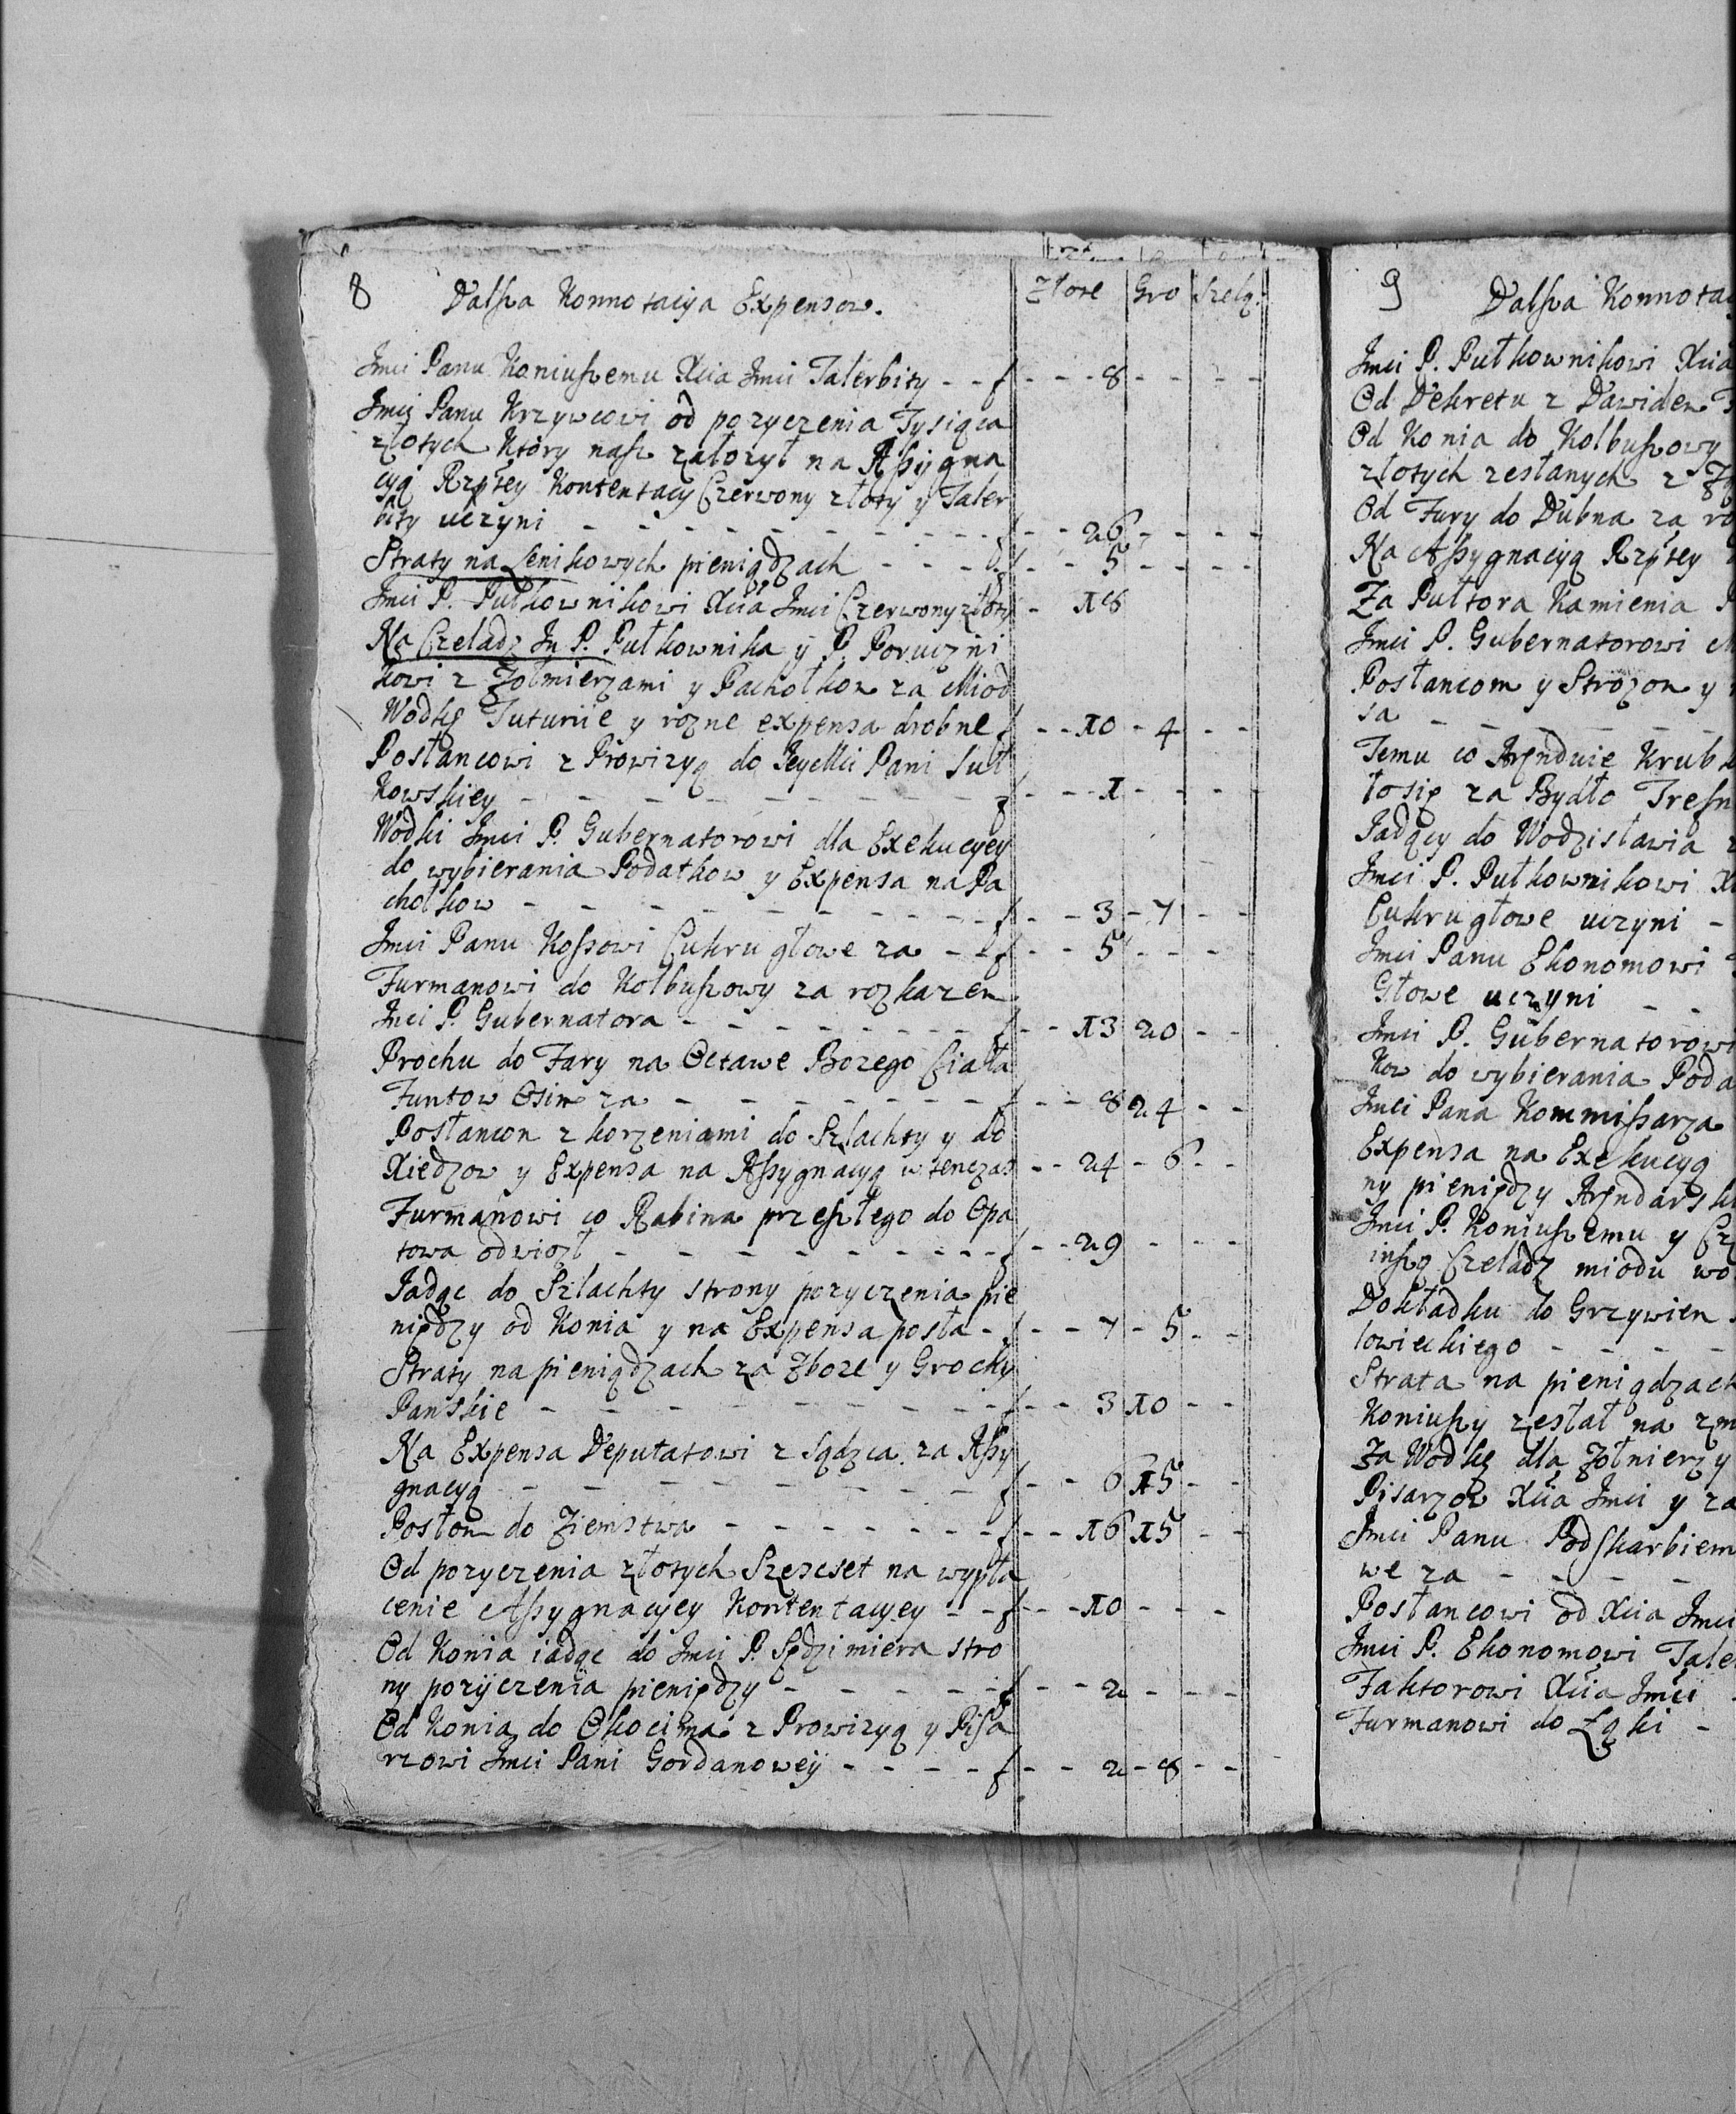 8 Dalsza Konnotacyia Expensow. Złote Gro Szelą.
Jmci Panu Koniuszemu Xcia Jmci Talerbity - - f - - - 8 - - - -
Jmci Panu Krzywcowi od pozyczenia Tysiąca
złotych Który nasz załozył na Assygna
cyą Rzptey Kontentacy Czerwony złoty y Taler
bity uczyni - - - - - - - - f - - 26 - - - -
Straty na Lenikowych pieniądzach - - - f - - 5 - - - -
Jmci P. Pułkownikowi Xcia Jmci Czerwony złoty - 18
Na Czeladz Jm P. Pułkownika y P. Poruczni
kowi z Zołmierzami y Pachołkom za Miod
Wodkę Tutunie y rozne expensa drobne f - - 10 - 4 - -
Posłancowi z Prowizyą do Jeymci Pani Suł
kowskiey - - - - - - - - f - - - 1 - - - -
Wodki Jmci P. Gubernatorowi dla Exekucyey
do wybierania Podatkow y Expensa na Pa
chołkow - - - - - - - - f - - 3 - 7 - -
Jmci Panu Kossowi Cukru głowe za - - f - - 5 - - -
Furmanowi do Kolbuszowy za rozkazem
Jmci P. Gubernatora - - - - - - - f - - 13 20 - -
Prochu do Fary na Octawe Bozego Ciała
Funtow Osim za - - - - - - - f - - 8 24 - -
Posłancom z korzeniami do Szlachty y do
Xiedzow y Expensa na Assygnacyą wtenczas - - 24 - 6 - -
Furmanowi co Rabina przeszłego do Opa
towa odwiozł - - - - - - - - f - - 29 - - -
Jadąc do Szlachty strony pozyczenia pie
niędzy od Konia y na Expensa posła - f - - 7 - 5 - -
Straty na pieniądzach za Zboze y Grochy
Panskie - - - - - - - - f - - 3 10 - -
Na Expensa Deputatowi z Sądzca za Assy
gnacyą - - - - - - - - f - - 6 15 - -
Posłom do Ziemstwa - - - - - - - f - - 16 15 - -
Od pozyczenia złotych Szescset na wypła
cenie Assygnacyey Kontentacyey - - f - - - 10 - - -
Od Konia iadąc do Jmci P. Sędzimiera stro
ny pozyczenia pieniędzy - - - - - f - - - 2 - - -
Od Konia do Okocima z Prowizyą y Pisa
rzowi Jmci Pani Gordanowey - - - - f - - 2 - 8 - -
9 Dalsza Konnota
Jmci P. Pułkownikowi Xcia
Od Dekretu z Dawidem
Od Konia do Kolbuszowy
złotych zesłanych z
Od Fury do Dubna za
Na Assygnacyą Rzptey
Za Pułtora Kamienia
Jmci P. Gubernatorowi
Posłancom y Strozom y
sa - - - - - -
Temu co Arenduie
łosię za Bydło
Jadący do Wodzisławia
Jmci P. Pułkownikowi
Cukru głowe uczyni -
Jmci Panu Ekonomowi
Głowe uczyni - -
Jmci P. Gubernatorowi
kow do wybierania Poda
Jmci Pana Kommissarza
Expensa na Exekucyą
ny pieniędzy Arendarsk
Jmci P. Koniuszemu y
inszą Czeladz miodu wo
Dokładku do Grzywien
łowieckiego - - - -
Strata na pieniądzach
Koniuszy zesłał na
Za Wodkę dla Zołnierzy
Pisarzow Xcia Jmci y za
Jmci Panu Podskarbiem
we za - - - -
Posłancowi od Xcia Jmci
Jmci P. Ekonomowi Tale
Faktorowi Xcia Jmci
Furmanowi do Łąki -